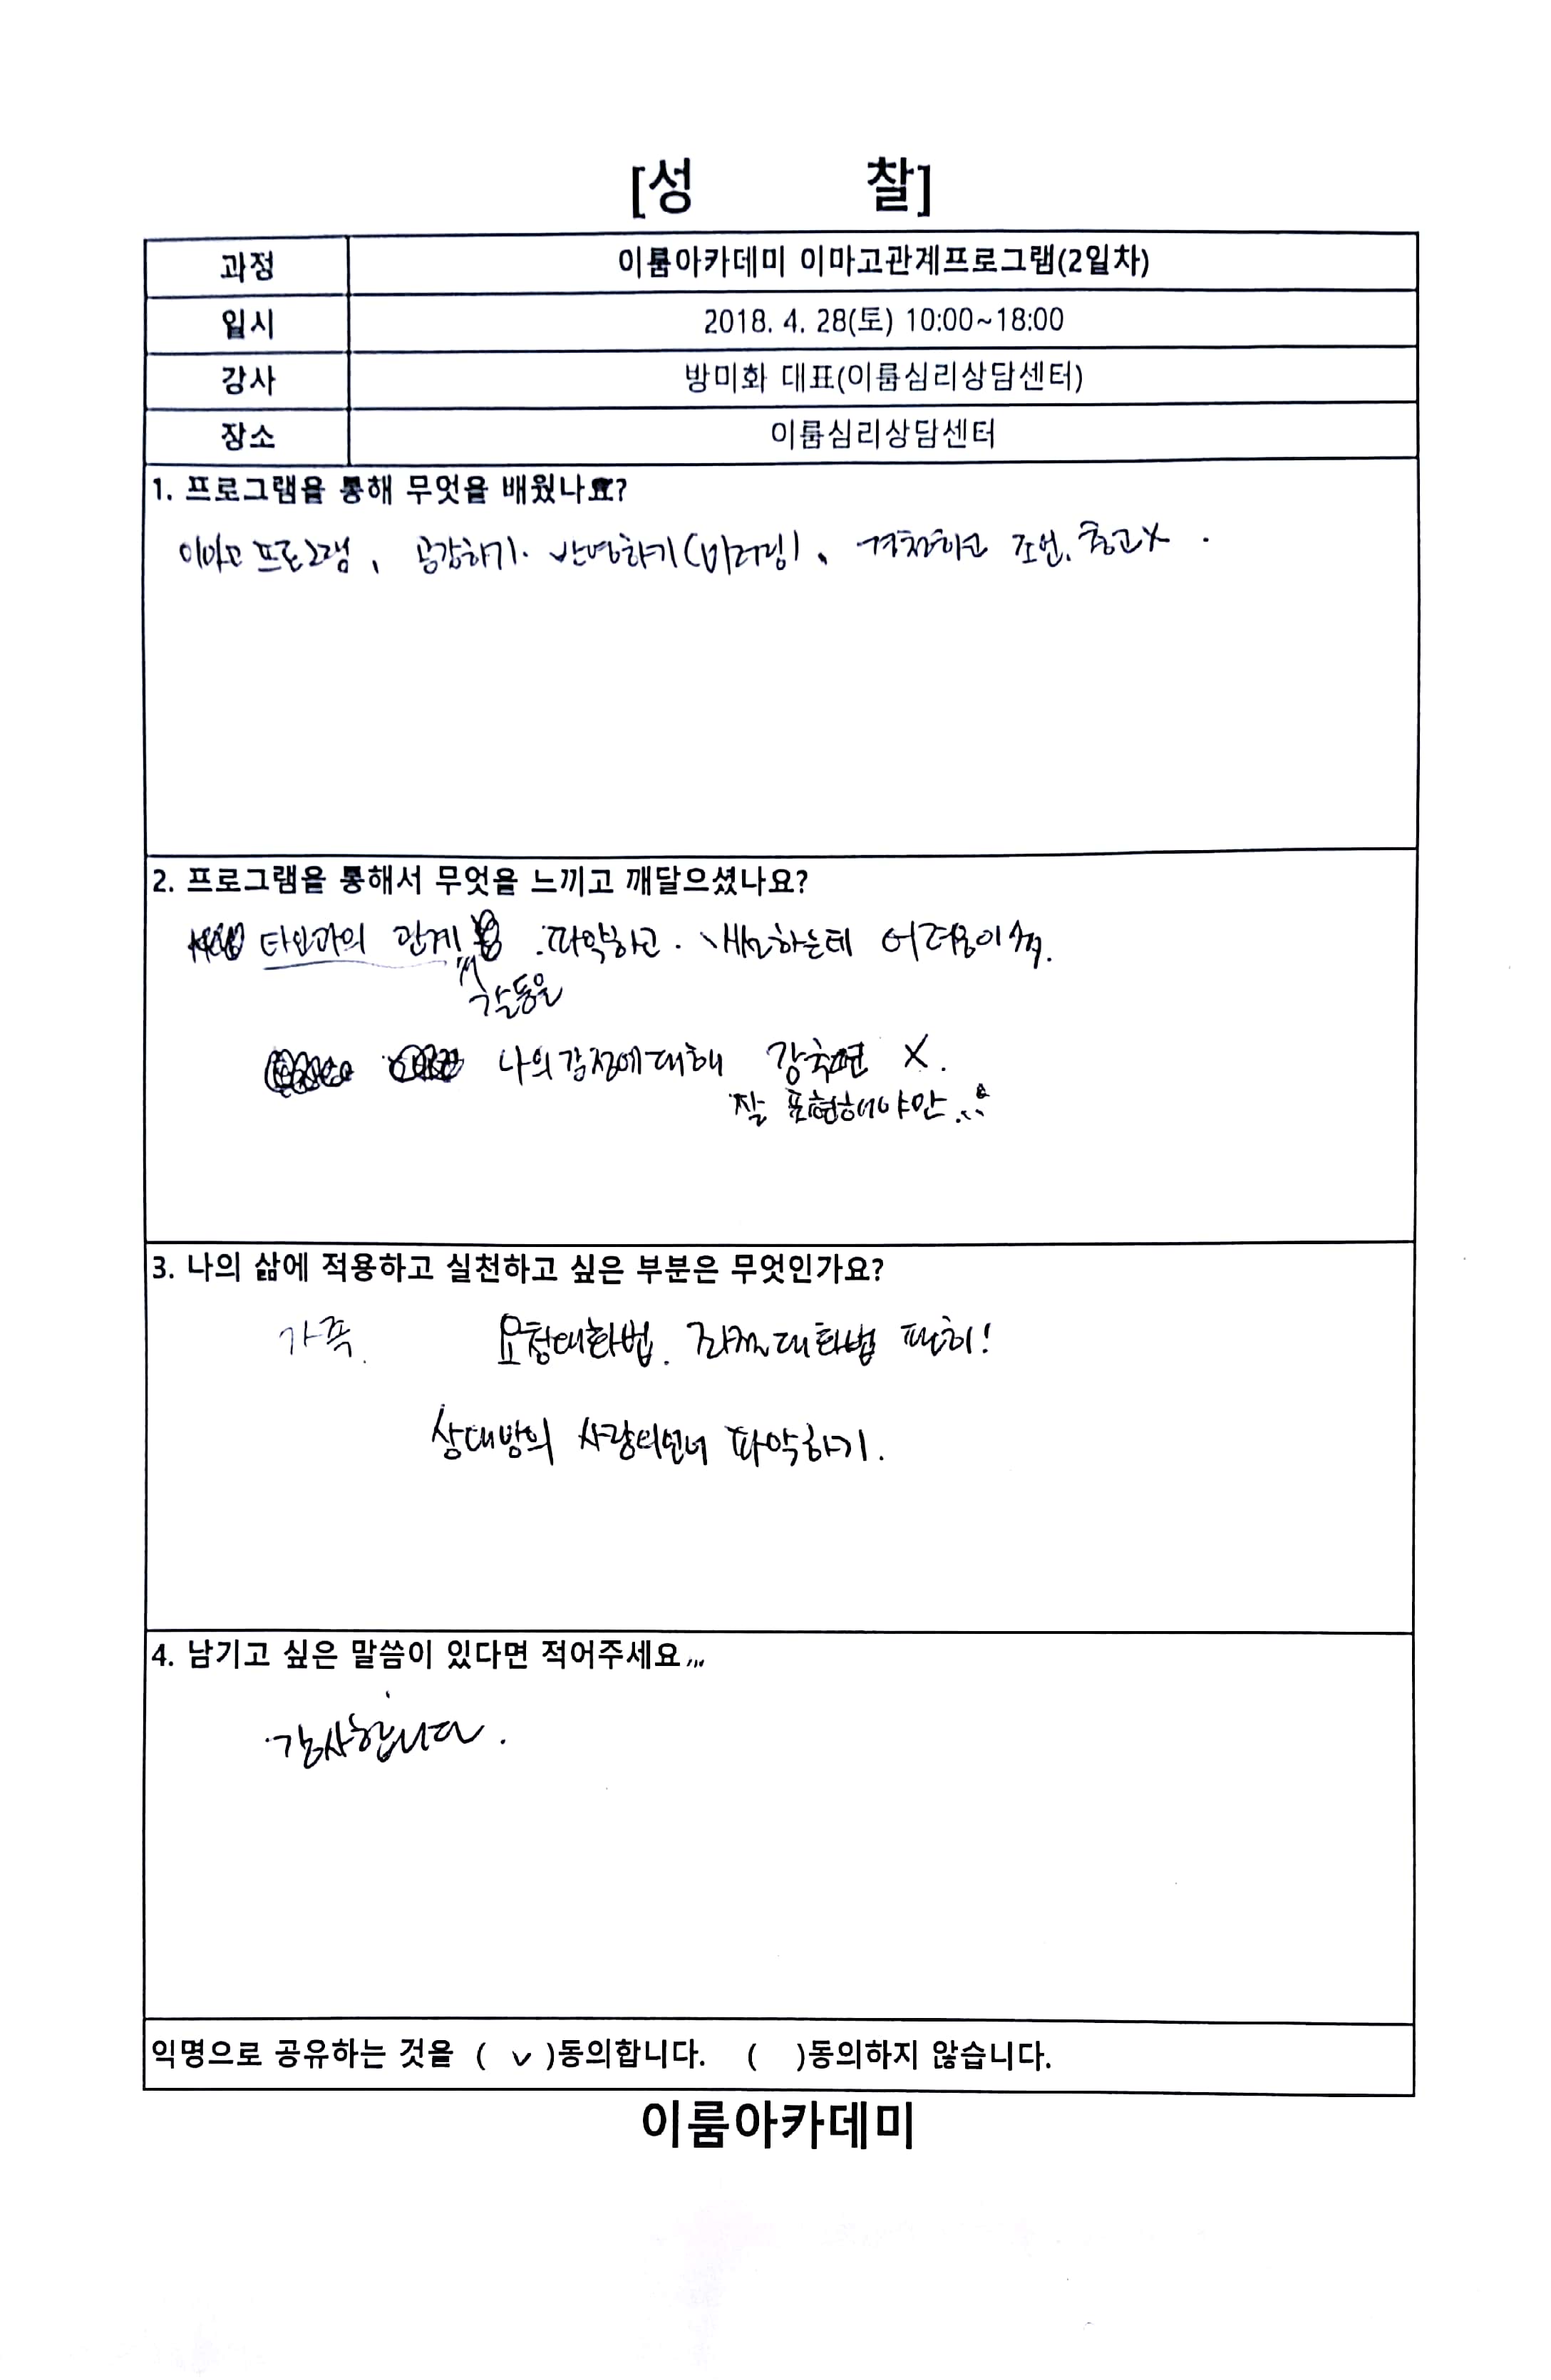 [성 찰]
과정 이룸아카데미 이마고관계프로그램(2일차)
일시 2018. 4. 28(토) 10:00~18:00
강사 방미화 대표(이룸심리상담센터)
장소 이룸심리상담센터
1. 프로그램을 통해 무엇을 배웠나요?
이마고 프로그램, 공감하기. 반영하기(미러링), 경청하고 조언, 충고X.
2. 프로그램을 통해서 무엇을 느끼고 깨달으셨나요?
타인과의 관계 파악하고. 하는데 어려움이
갈등을
나의 감정에 대해 X.
잘 표현해야만...
3. 나의 삶에 적용하고 실천하고 싶은 부분은 무엇인가요?
가족. 요청대화법. 대화법
상대방의 사랑의언어 파악하기.
4. 남기고 싶은 말씀이 있다면 적어주세요,,,
감사합니다.
익명으로 공유하는 것을 ( v )동의합니다. ( )동의하지 않습니다.
이룸아카데미